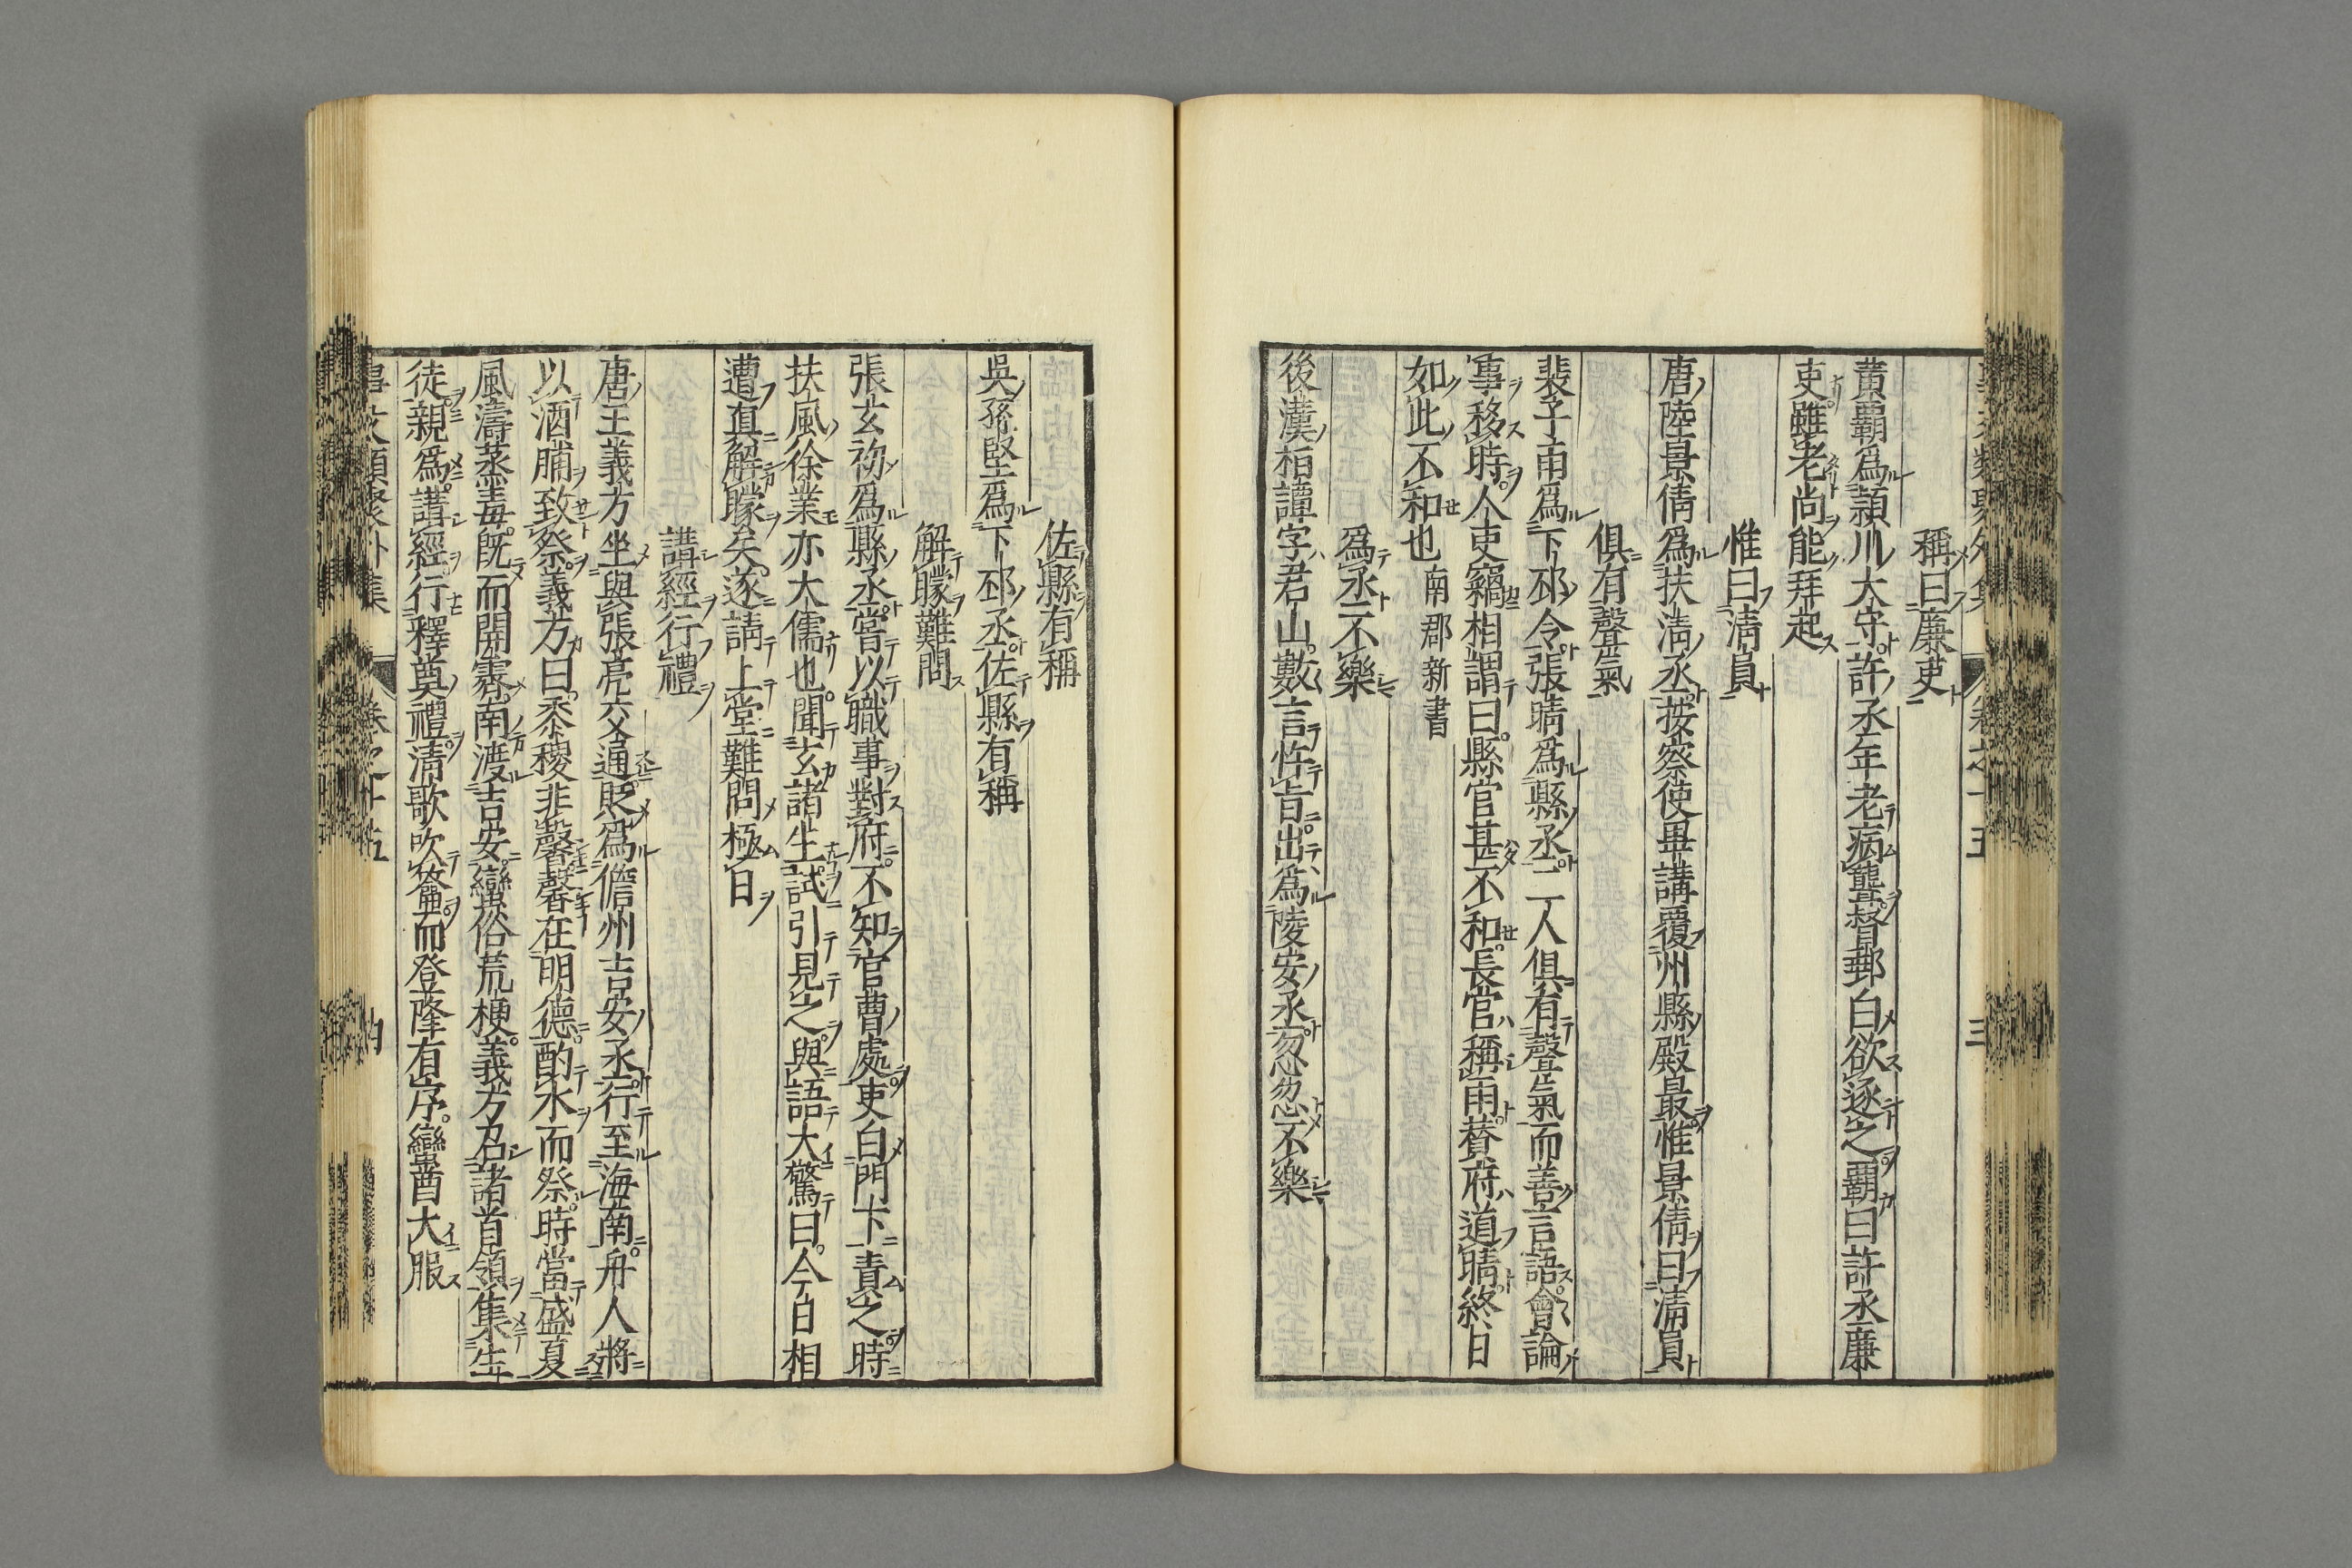 稱曰廉吏
黄霸為頴川大守許丞年老病聾督郵白欲逐之霸曰許丞廉
吏雖老尚能拜起
惟曰清員
唐陸景倩為扶溝丞按察使畢講覆州縣殿最惟景倩曰清員
俱有聲氣
裴子雨為下邳令張晴為縣丞二人俱有聲氣而善言語會論
事移時人吏竊相謂曰縣官甚不和長官稱雨賛府道晴終日
如此不和也南郡新書
為丞不樂
後漢桓譚字君山數言忤旨出為陵安丞忽忽不樂
佐縣有稱
吳孫堅為下邳丞佐縣有稱
解矇難問
張玄初為縣丞嘗以職事對府不知官曹處吏白門下責之時
扶風徐業亦大儒也聞玄諸生試引見之與語大驚曰今日相
遭直解矇矣遂請上堂難問極日
講經行禮
唐王義方坐與張亮交通貶為儋州吉安丞行至海南舟人將
以酒脯致祭義方曰黍稷非馨馨在明德酌水而祭時當盛夏
風濤蒸毒既而開霽南渡吉安蠻俗荒梗義方召諸首領集生
徒親為講經行釋奠禮清歌吹籥而登隆有序蠻酋大服